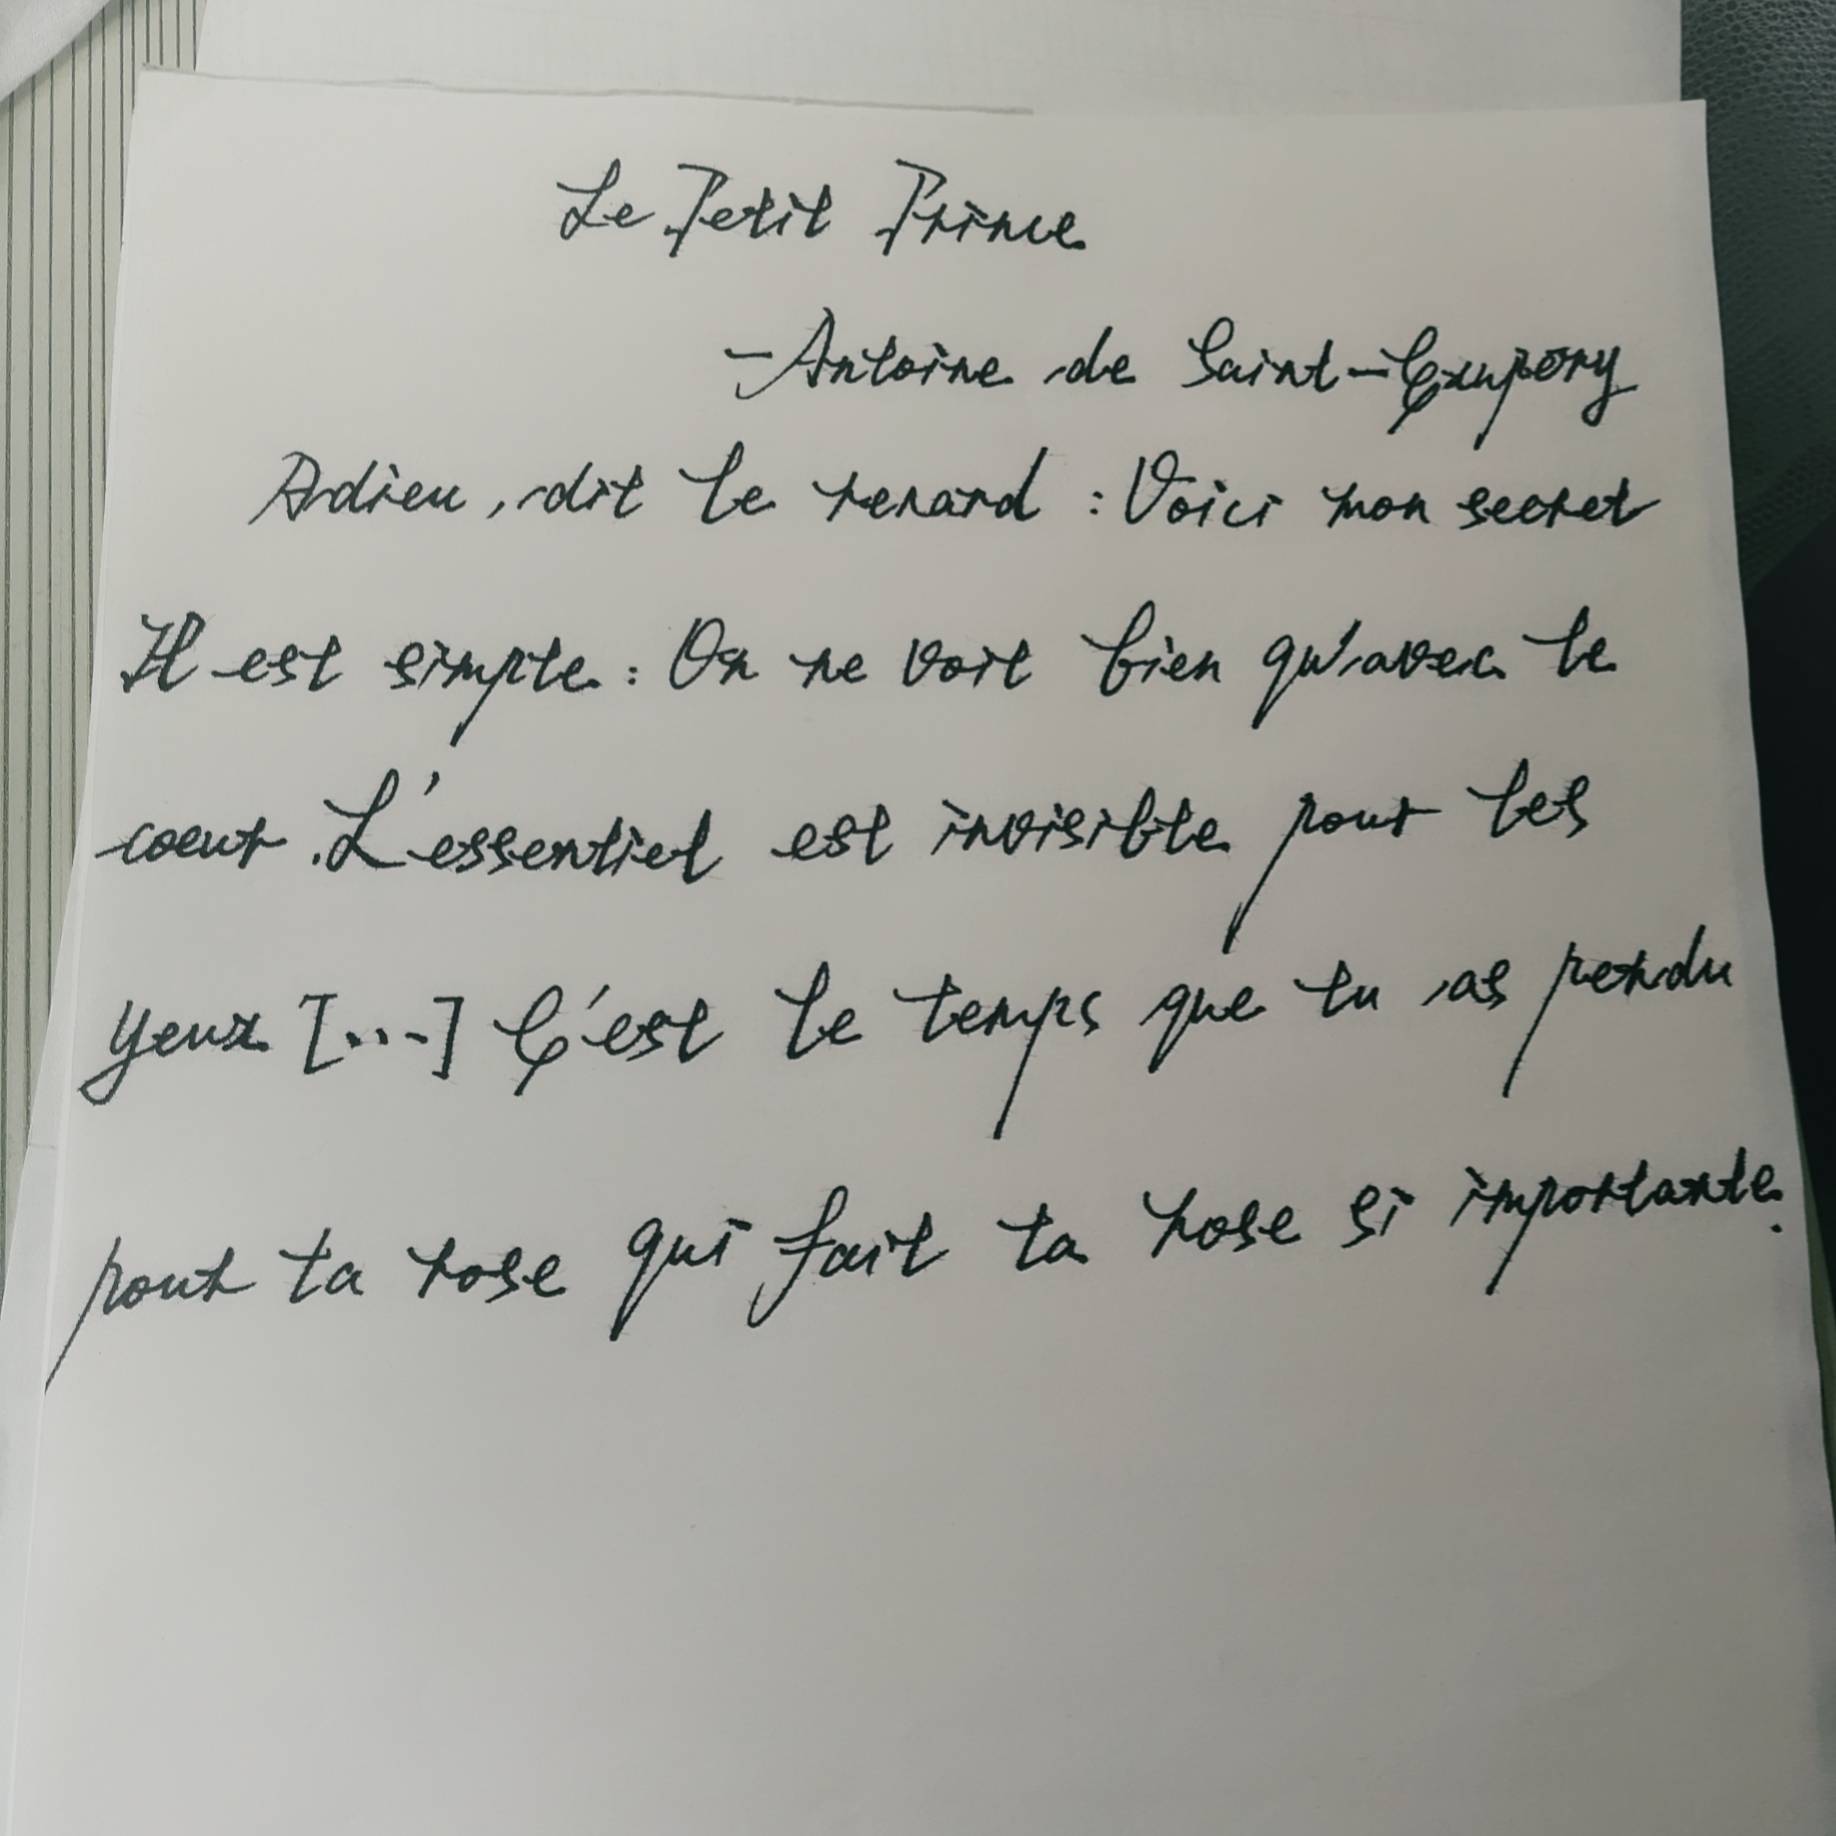 Le Petit Prince
- Antoine de Saint-Exupery
Adieu, dit le renard : Voici mon secret
Il est simple : On ne voit bien qu'avec le
coeur. L'essentiel est invisible pour les
yeux [...] C'est le temps que tu as perdu
pour ta rose qui fait ta rose si importante.